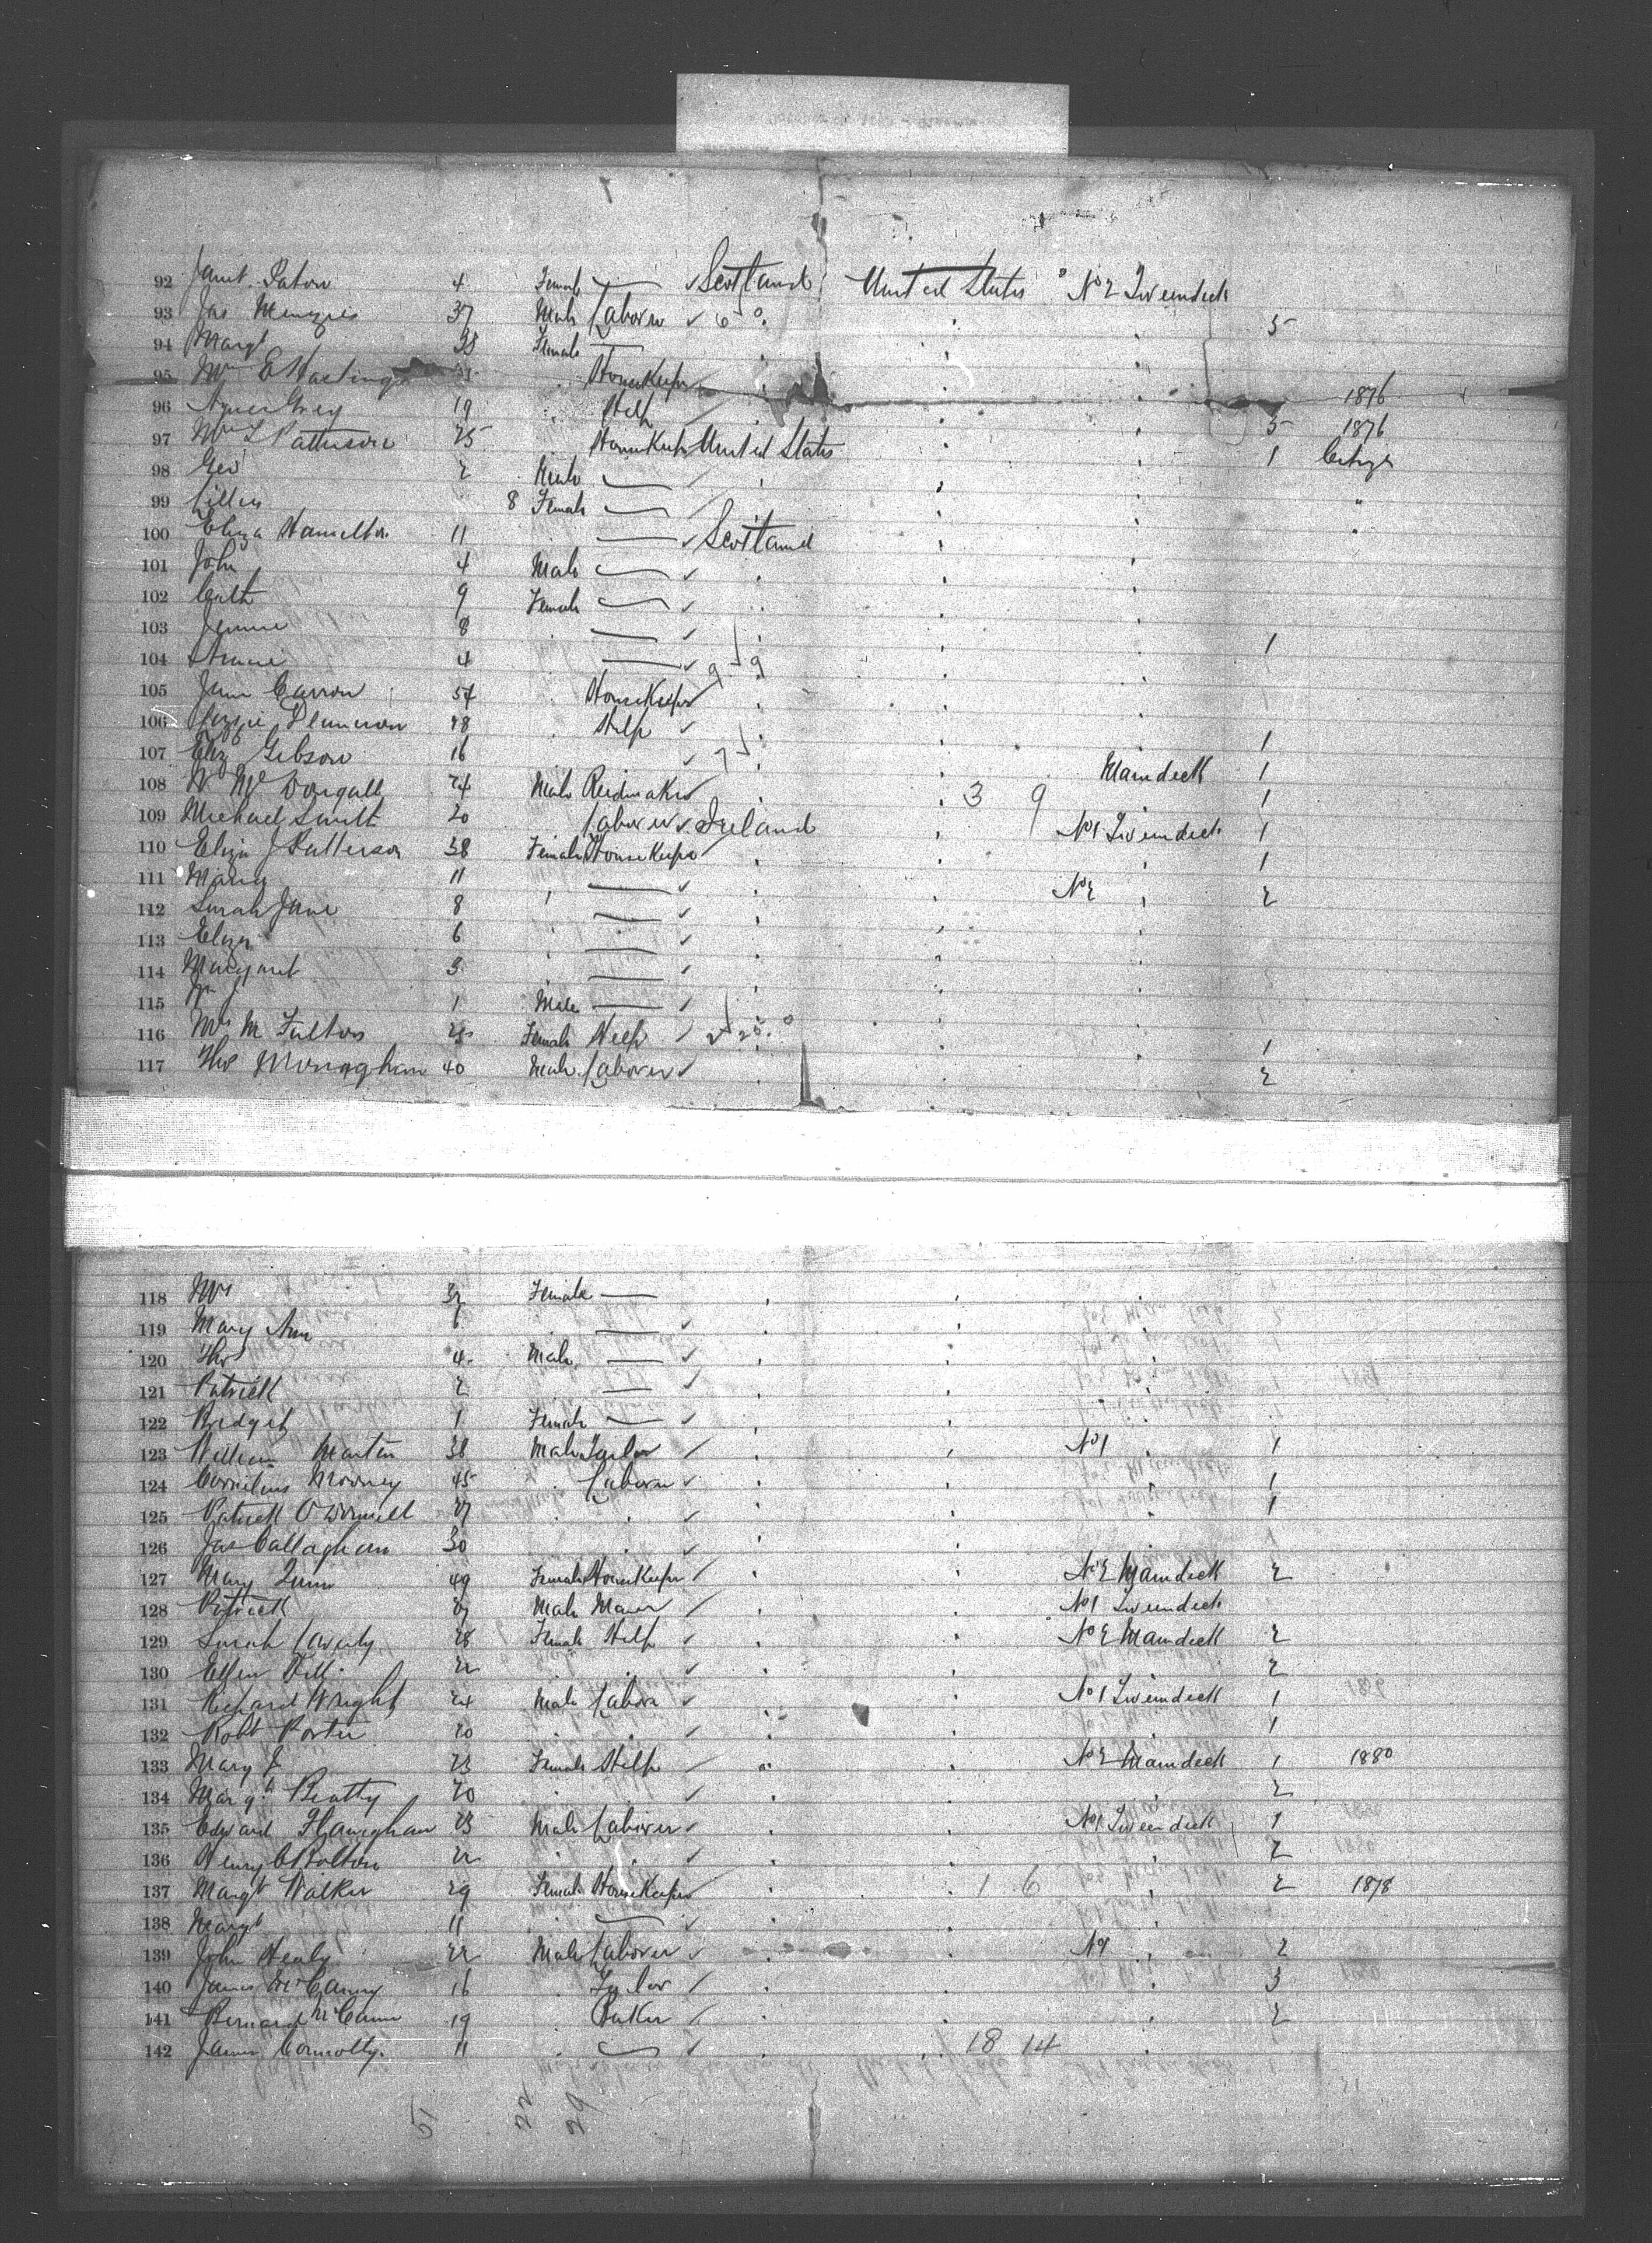 92 Janet Paton 4 Female — ✓ Scotland United States No 2 Tweendeck
93 Jas Menzies 37 Male Laborer ✓ 5
94 Margt 33 Female —
95 Mrs E Hastings Housekeeper 1876
96 Agnes Grey 19 Help 5 1876
97 Mrs L Patterson 25 Housekeeper United States 1 Citizn
98 Geo 2 Male —
99 Lillies 8 Female — "
100 Eliza Hamilton 11 — ✓ Scotland
101 John 4 Male — ✓
102 Cath 9 Female — ✓
103 Jennie 8 — ✓ 1
104 Annie 4 — ✓
105 Jane Carron 54 Housekeeper
106 Lizzie Dennison 18 Help ✓ 1
107 Eliz Gibson 16 ✓ Maindeck 1
108 W McDougall 24 Male Reedmaker 3 9 1
109 Michael Smith 20 Laborer ✓ Ireland No 1 Tweendeck 1
110 Eliza J Patterson 38 Female Housekeeper 1
111 Mary 11 " — ✓ No 2 " 2
112 Sarah Jane 8 — ✓
113 Eliza 6 — ✓
114 Margaret 3 — ✓
115 Wm J 1 Male — ✓
116 Mrs M Fulton 25 Female Help ✓ 1
117 Thos Monaghan 40 Male Laborer ✓ 2
118 Mrs 32 Female —
119 Mary Ann 6 — ✓
120 Thos 4 Male — ✓
121 Patrick 2 — ✓
122 Bridget 1 Female — ✓
123 William Martin 38 Male Taylor ✓ No 1 1
124 Cornelius Mooney 45 Laborer ✓ 1
125 Patrick O'Donnell 27 ✓ 1
126 Jas Callaghan 30 ✓
127 Mary Quinn 49 Female Housekeeper ✓ No 2 Maindeck 2
128 Patrick 27 Male ✓ No 1 Tweendeck
129 Sarah Laverty 28 Female Help ✓ No 2 Maindeck 2
130 Ellen 22 ✓ 2
131 Richard Wright 24 Male Labor ✓ No 1 Tweendeck 1
132 Robt Porter 20 ✓ 1
133 Mary J 23 Female Help ✓ No 2 Maindeck 1 1880
134 Margt Beatty 20 ✓ 2
135 Edward Flanighan 23 Male Laborer ✓ No 1 Tweendeck 1
136 Henry Bolton 22 ✓ 2
137 Margt Walker 29 Female Housekeeper 1 6 2 1878
138 Margt 11 — ✓
139 John Healy 22 Male Laborer ✓ No 1 2
140 James McCanny 16 Taylor ✓ 3
141 Bernard McCann 19 Baker ✓ 2
142 James Connolly 11 — ✓ 18 14
51 22 29